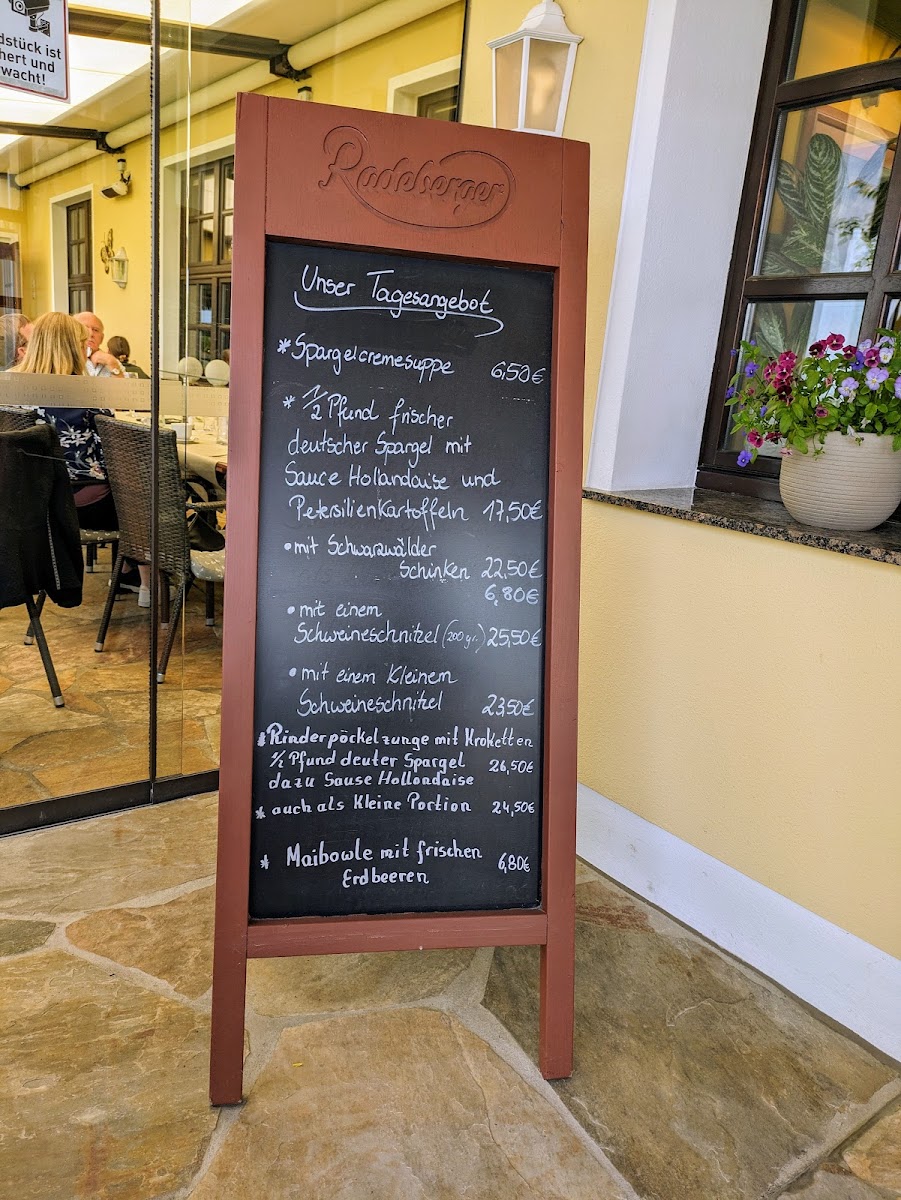 dstück ist
hert und
wacht!
Radeberger
Unser Tagesangebot
* Spargelcremesuppe 6,50€
* 1/2 Pfund frischer
deutscher Spargel mit
Sauce Hollandaise und
Petersilienkartoffeln 17,50€
• mit Schwarzwälder
Schinken 22,50€
6,80€
• mit einem
Schweineschnitzel (200 gr.) 25,50€
• mit einem kleinem
Schweineschnitzel 23,50€
* Rinderpöckelzunge mit Kroketten
1/2 Pfund deuter Spargel 26,50€
dazu Sause Hollondaise
* auch als kleine Portion 24,50€
* Maibowle mit frischen 6,80€
Erdbeeren